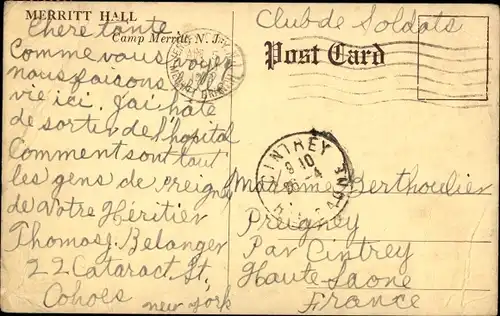 MERRITT HALL
Camp Merritt, N. J.
Club de Soldats
Post Card
Chere tante
Comme vous voyez
nous faisons
vie ici. J'ai hâte
de sortir de l'hopital
Comment sont tout
les gens de Preigney
de Votre Héritier
Thomas J. Belanger
22 Cataract St,
Cohoes new york
CINTREY
9 10
4
Madame Berthoulier
Preigney
Par Cintrey
Haute-Saone
France